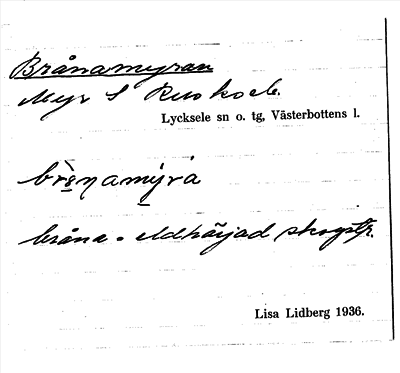 Brånamyran
Myr S Rusksele.
Lycksele sn o. tg, Västerbottens l.
bränamýra
bråna = eldhärjad skogstr.
Lisa Lidberg 1936.